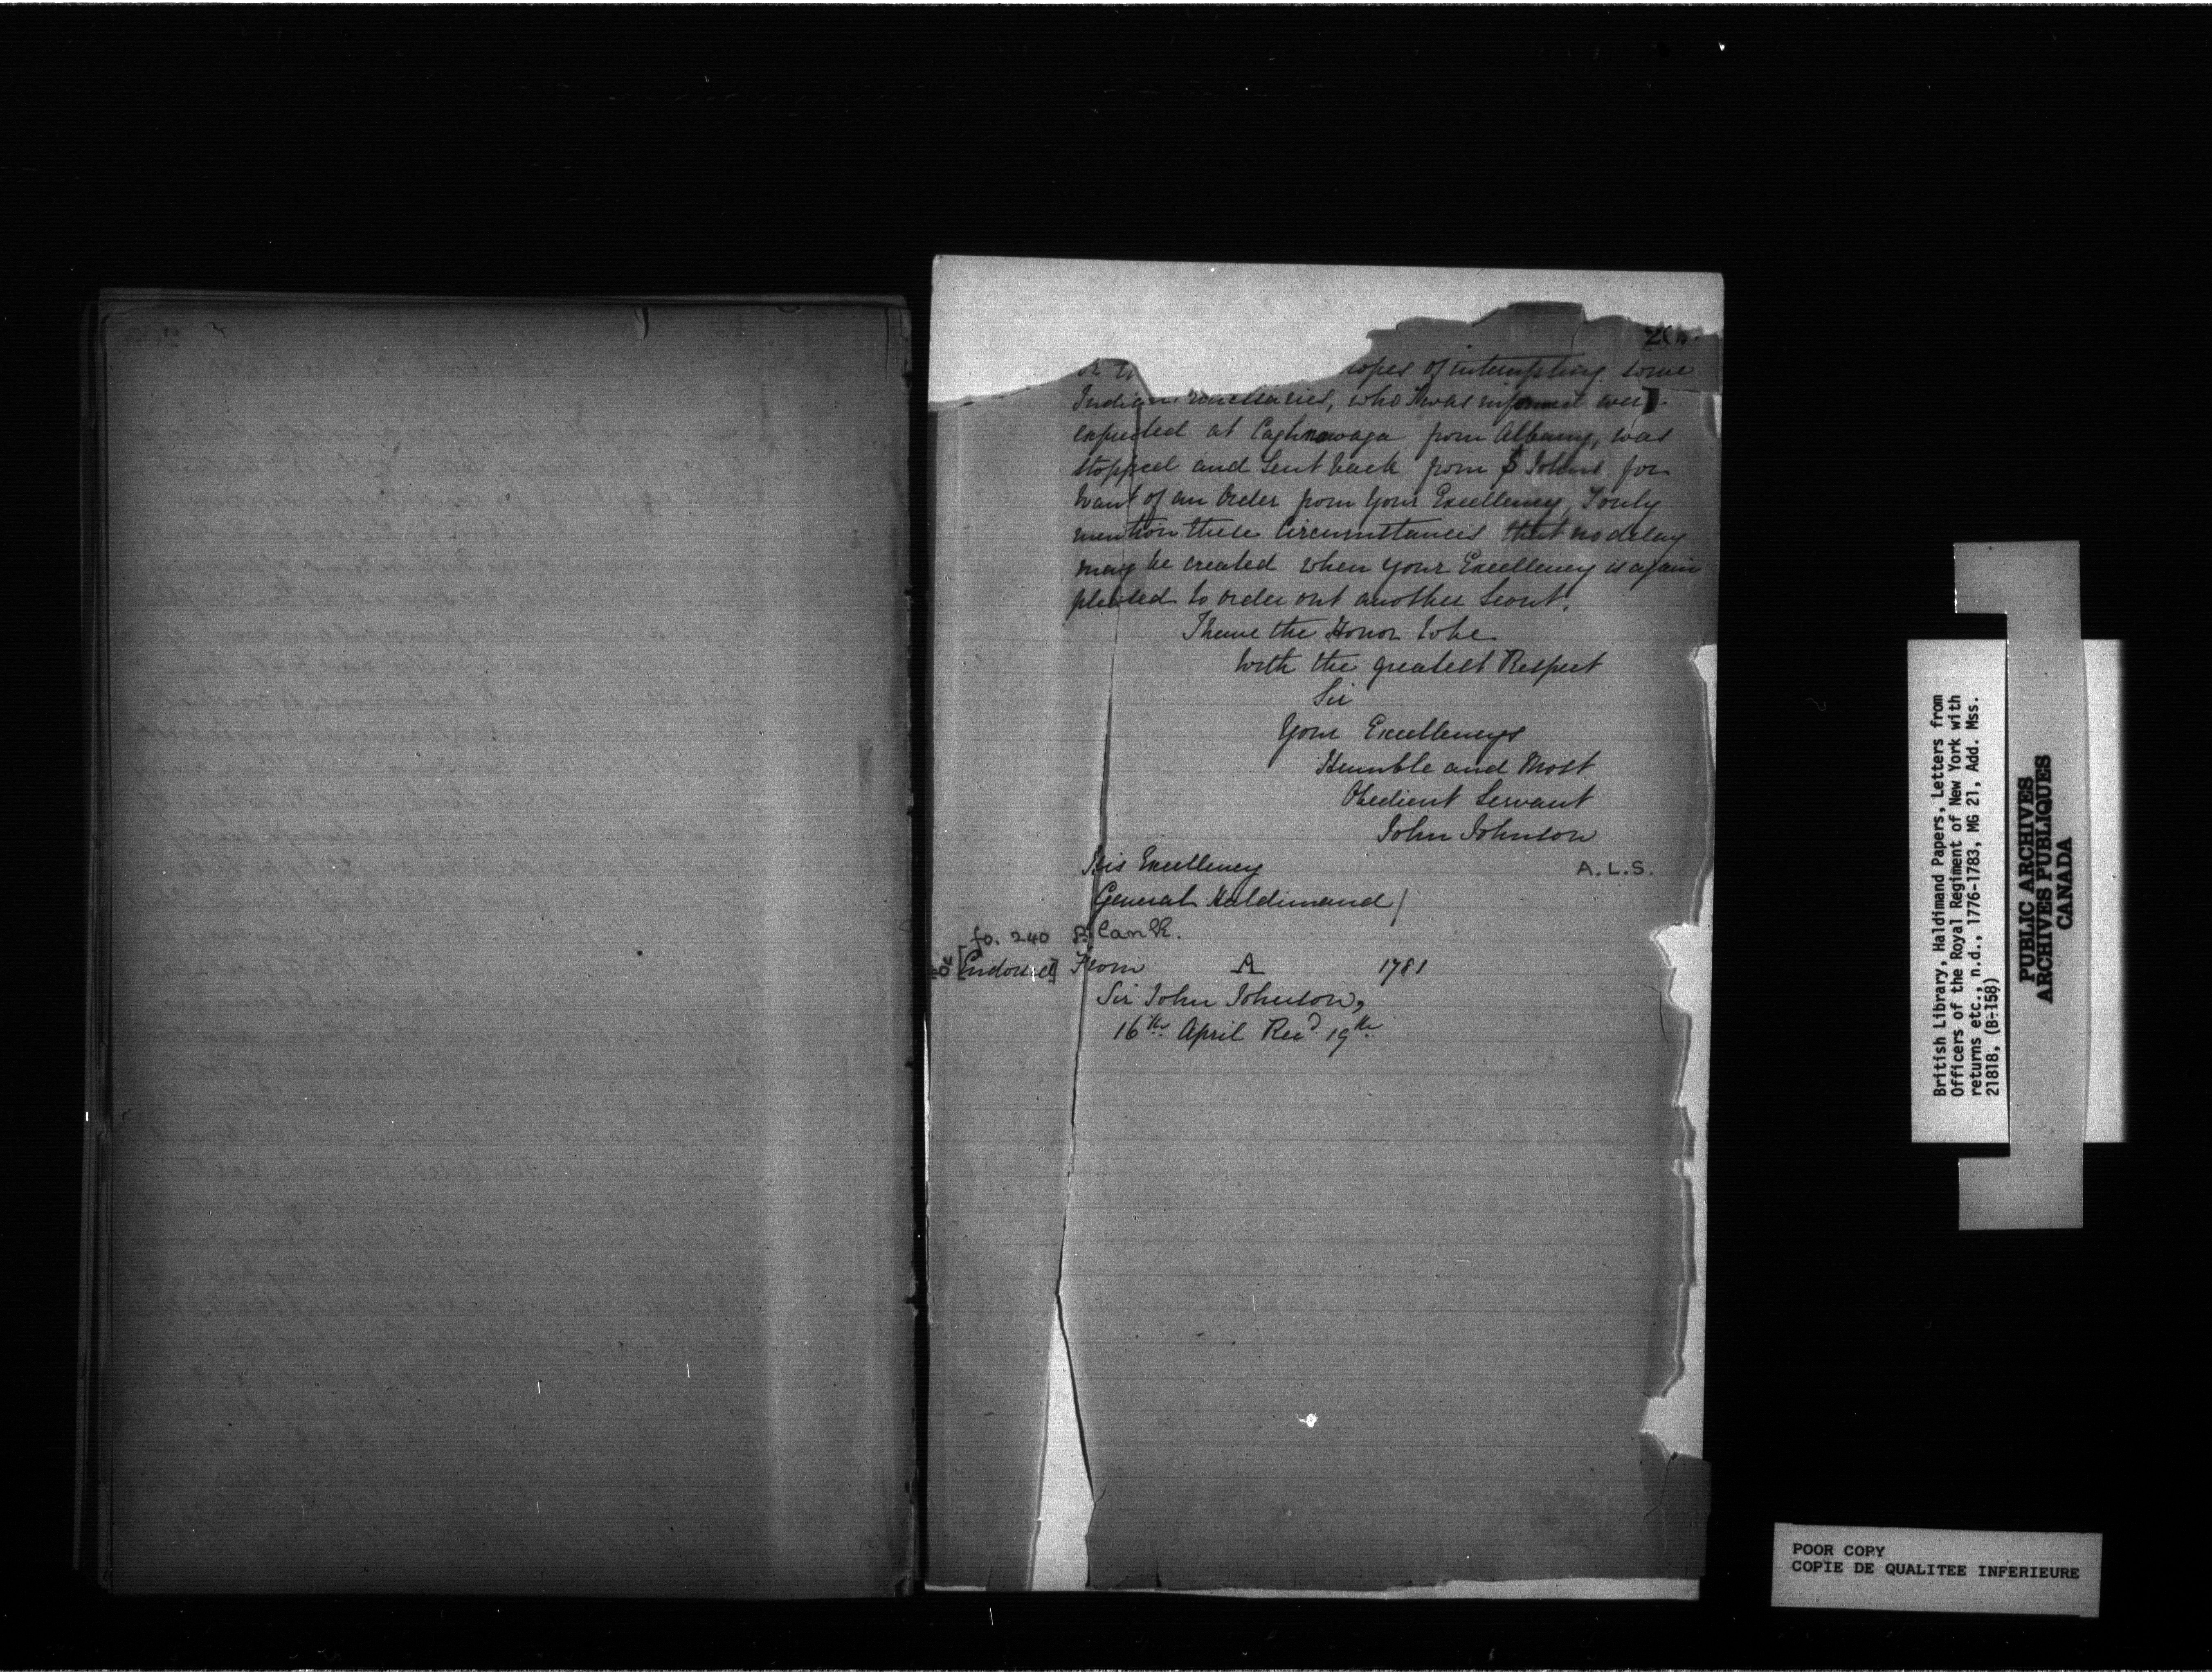 opes of interrupting some
Indian emissaries, who I was informed were
expected at Caghnawaga from Albany, was
stopped and Sent back from St Johns for
want of an Order from Your Excellency, I only
mention these Circumstances that no delay
may be created when your Excellency is again
pleased to order out another Scout.
I have the Honor to be
With the greatest Respect
Sir
Your Excellencys
Humble and Most
Obedient Servant
John Johnson
A.L.S.
His Excellency
General Haldimand /
fo. 240 Blank.
[Endorsed] From A 1781
Sir John Johnson,
16th April Recd 19th
British Library, Haldimand Papers, Letters from
Officers of the Royal Regiment of New York with
returns etc., n.d., 1776-1783, MG 21, Add. Mss.
21818, (B-158)
PUBLIC ARCHIVES
ARCHIVES PUBLIQUES
CANADA
POOR COPY
COPIE DE QUALITEE INFERIEURE